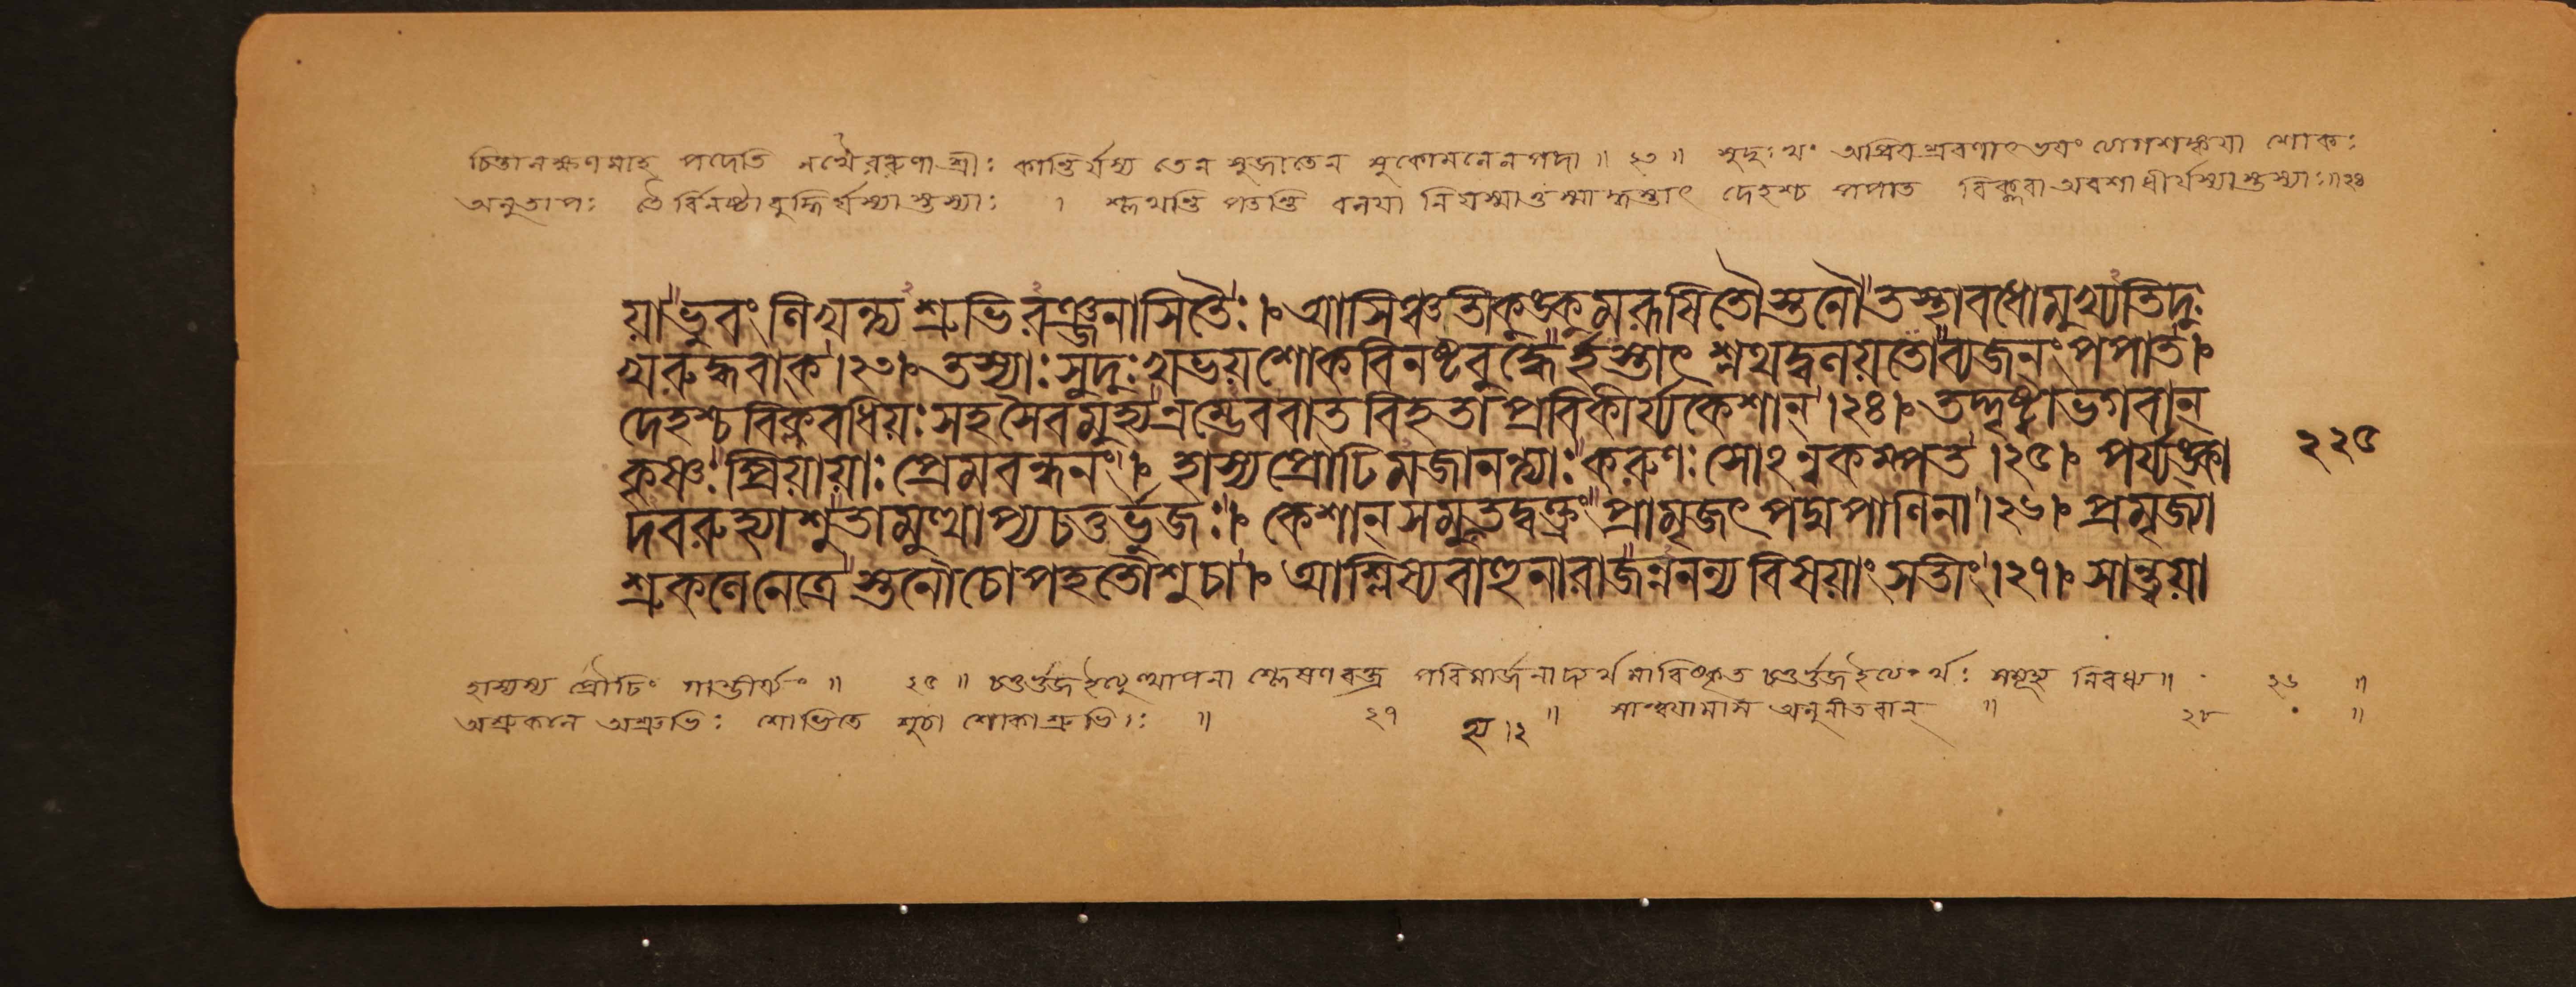 চিন্তালক্ষণমাহ পদেতি নখৈররুণা শ্রীঃ কান্তির্যস্য তেন সুজাতেন সুকোমলেন পদা ॥ ২৩ ॥ সুদুঃখং অপ্রিয়শ্রবণাৎ ভয়ং ত্যাগশঙ্কয়া শোকঃ
অনুতাপঃ তৈর্বিনষ্টা বুদ্ধির্যস্যাস্তস্যাঃ । শ্লথন্তি পতন্তি বলয়া নি যস্মাত্তস্মাদ্ধস্তাৎ দেহশ্চ পপাত বিক্লবা অবশা ধীর্যস্যাস্তস্যাঃ॥২৪
য়া ভুবং লিখন্ত্যশ্রুভিরঞ্জনাসিতৈঃ। আসিঞ্চতী কুঙ্কুমরূষিতৌ স্তনৌ তস্থাবধোমুখ্যতিদুঃ
খরুদ্ধবাক্।২৩। তস্যাঃ সুদুঃখভয়শোকবিনষ্টবুদ্ধের্হস্তাৎ শ্লথদ্বলয়তো ব্যজনং পপাত।
দেহশ্চ বিক্লবধিয়ঃ সহসৈব মুহ্যন্ রম্ভেব বাতবিহতা প্রবিকীর্য্য কেশান্।২৪। তদ্দৃষ্ট্বা ভগবান্
কৃষ্ণঃ প্রিয়ায়াঃ প্রেমবন্ধনং। হাস্যপ্রৌঢিমজানন্ত্যাঃ করুণঃ সোঽন্বকম্পত।২৫। পর্য্যঙ্কা
দবরুহ্যাশু তামুত্থাপ্য চতুর্ভুজঃ। কেশান্ সমুহ্য তদ্বক্ত্রং প্রামৃজৎ পদ্মপাণিনা।২৬। প্রমৃজ্যা
শ্রুকলে নেত্রে স্তনৌ চোপহতৌ শুচা। আশ্লিষ্য বাহুনা রাজন্ননন্যবিষয়াং সতীং।২৭। সান্ত্বয়া
২২৫
হাস্যস্য প্রৌঢিং গাম্ভীর্য্যং ॥ ২৫ ॥ চতুর্ভুজ ইত্যুত্থাপনা শ্লেষণবক্ত্র পরিমার্জনাদ্যর্থমাবিষ্কৃত চতুর্ভুজ ইত্যর্থঃ সমুহ্য নিবধ্য ॥ ২৬ ॥
অশ্রুকলে অশ্রুভিঃ শোভিতে শুচা শোকাশ্রুভিঃ ॥ ২৭ ॥ সান্ত্বয়ামাস অনুনীতবান্ ॥ ২৮ ॥
হ্য।২